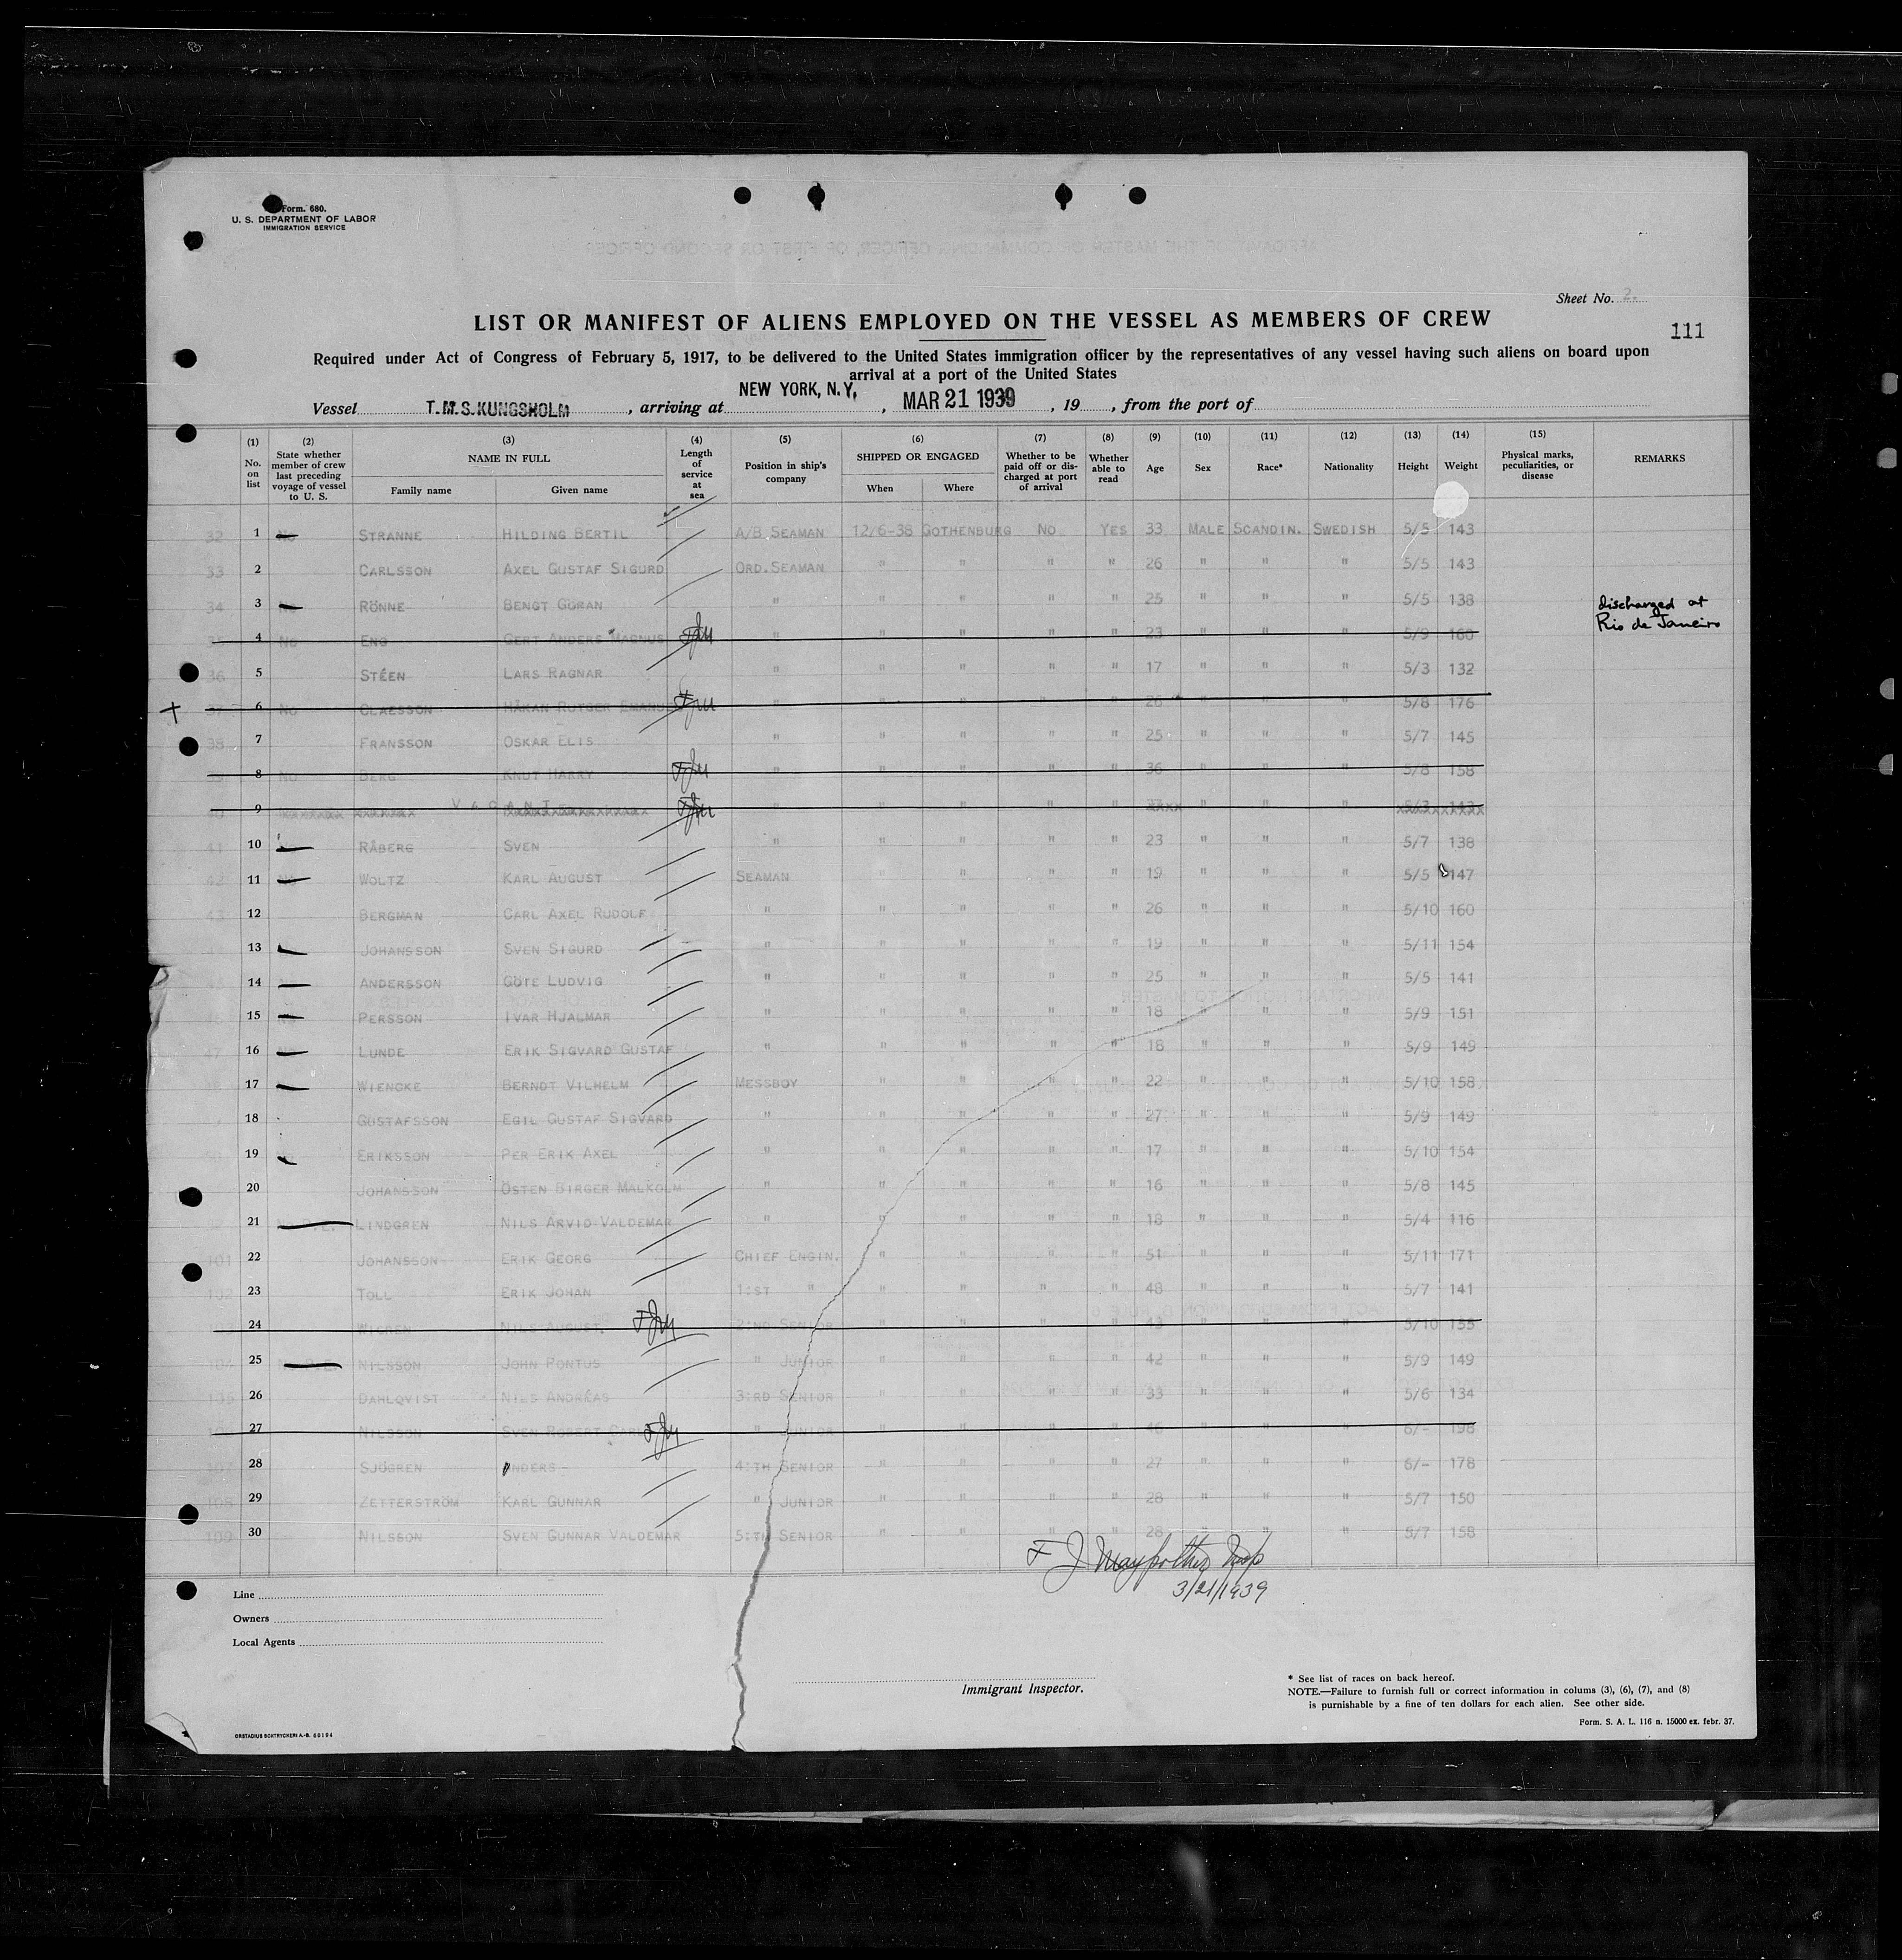 Form. 680.
U. S. DEPARTMENT OF LABOR
IMMIGRATION SERVICE
Sheet No. 2.
LIST OR MANIFEST OF ALIENS EMPLOYED ON THE VESSEL AS MEMBERS OF CREW
111
Required under Act of Congress of February 5, 1917, to be delivered to the United States immigration officer by the representatives of any vessel having such aliens on board upon
arrival at a port of the United States
Vessel T.M.S. KUNGSHOLM, arriving at NEW YORK, N.Y., MAR 21 1939, 19, from the port of
(1) (2) (3) (4) (5) (6) (7) (8) (9) (10) (11) (12) (13) (14) (15)
No. on list State whether member of crew last preceding voyage of vessel to U. S. NAME IN FULL Family name Given name Length of service at sea Position in ship's company SHIPPED OR ENGAGED When Where Whether to be paid off or discharged at port of arrival Whether able to read Age Sex Race* Nationality Height Weight Physical marks, peculiarities, or disease REMARKS
32 1 No STRANNE HILDING BERTIL A/B SEAMAN 12/6-38 GOTHENBURG NO YES 33 MALE SCANDIN. SWEDISH 5/5 143
33 2 CARLSSON AXEL GUSTAF SIGURD ORD.SEAMAN " " " " 26 " " " 5/5 143
34 3 No RÖNNE BENGT GÖRAN " " " " " 25 " " " 5/5 138 discharged at
35 4 No ENG GERT ANDERS MAGNUS FJM " " " " " 23 " " " 5/9 160 Rio de Janeiro
36 5 STÉEN LARS RAGNAR " " " " " 17 " " " 5/3 132
37 6 No CLAESSON HÅKAN RUTGER EMANUEL FJM " " " " " 26 " " " 5/8 176
38 7 FRANSSON OSKAR ELIS " " " " " 25 " " " 5/7 145
39 8 No BERG KNUT HARRY FJM " " " " " 36 " " " 5/8 158
40 9 VACANT FJM " " " " " " " "
41 10 RÅBERG SVEN " " " " " 23 " " " 5/7 138
42 11 WOLTZ KARL AUGUST SEAMAN " " " " 19 " " " 5/5 147
43 12 BERGMAN CARL AXEL RUDOLF " " " " " 26 " " " 5/10 160
13 JOHANSSON SVEN SIGURD " " " " " 19 " " " 5/11 154
14 ANDERSSON GÖTE LUDVIG " " " " " 25 " " " 5/5 141
15 PERSSON IVAR HJALMAR " " " " " 18 " " " 5/9 151
47 16 LUNDE ERIK SIGVARD GUSTAF " " " " " 18 " " " 5/9 149
17 WIENCKE BERNDT VILHELM MESSBOY " " " " 22 " " " 5/10 158
18 GUSTAFSSON EGIL GUSTAF SIGVARD " " " " " 27 " " " 5/9 149
19 ERIKSSON PER ERIK AXEL " " " " " 17 " " " 5/10 154
20 JOHANSSON ÖSTEN BIRGER MALKOLM " " " " " 16 " " " 5/8 145
21 LINDGREN NILS ARVID VALDEMAR " " " " " 18 " " " 5/4 116
101 22 JOHANSSON ERIK GEORG CHIEF ENGIN. " " " " 51 " " " 5/11 171
102 23 TOLL ERIK JOHAN 1:ST " " " " " 48 " " " 5/7 141
103 24 WIGREN NILS AUGUST FJM 2:ND SENIOR " " " " 43 " " " 5/10 155
104 25 NILSSON JOHN PONTUS " JUNIOR " " " " 42 " " " 5/9 149
105 26 DAHLQVIST NILS ANDRÉAS 3:RD SENIOR " " " " 33 " " " 5/6 134
27 NILSSON SVEN ROBERT FJM " JUNIOR " " " " 46 " " " 6/- 198
107 28 SJÖGREN ANDERS 4:TH SENIOR " " " " 27 " " " 6/- 178
108 29 ZETTERSTRÖM KARL GUNNAR " JUNIOR " " " " 28 " " " 5/7 150
109 30 NILSSON SVEN GUNNAR VALDEMAR 5:TH SENIOR " " " " 28 " " " 5/7 158
F J Insp
3/21/1939
Line
Owners
Local Agents
Immigrant Inspector.
* See list of races on back hereof.
NOTE.—Failure to furnish full or correct information in colums (3), (6), (7), and (8)
is punishable by a fine of ten dollars for each alien. See other side.
Form. S. A. L. 116 n. 15000 ex. febr. 37.
ORSTADIUS BOKTRYCKERI A.-B. 60194